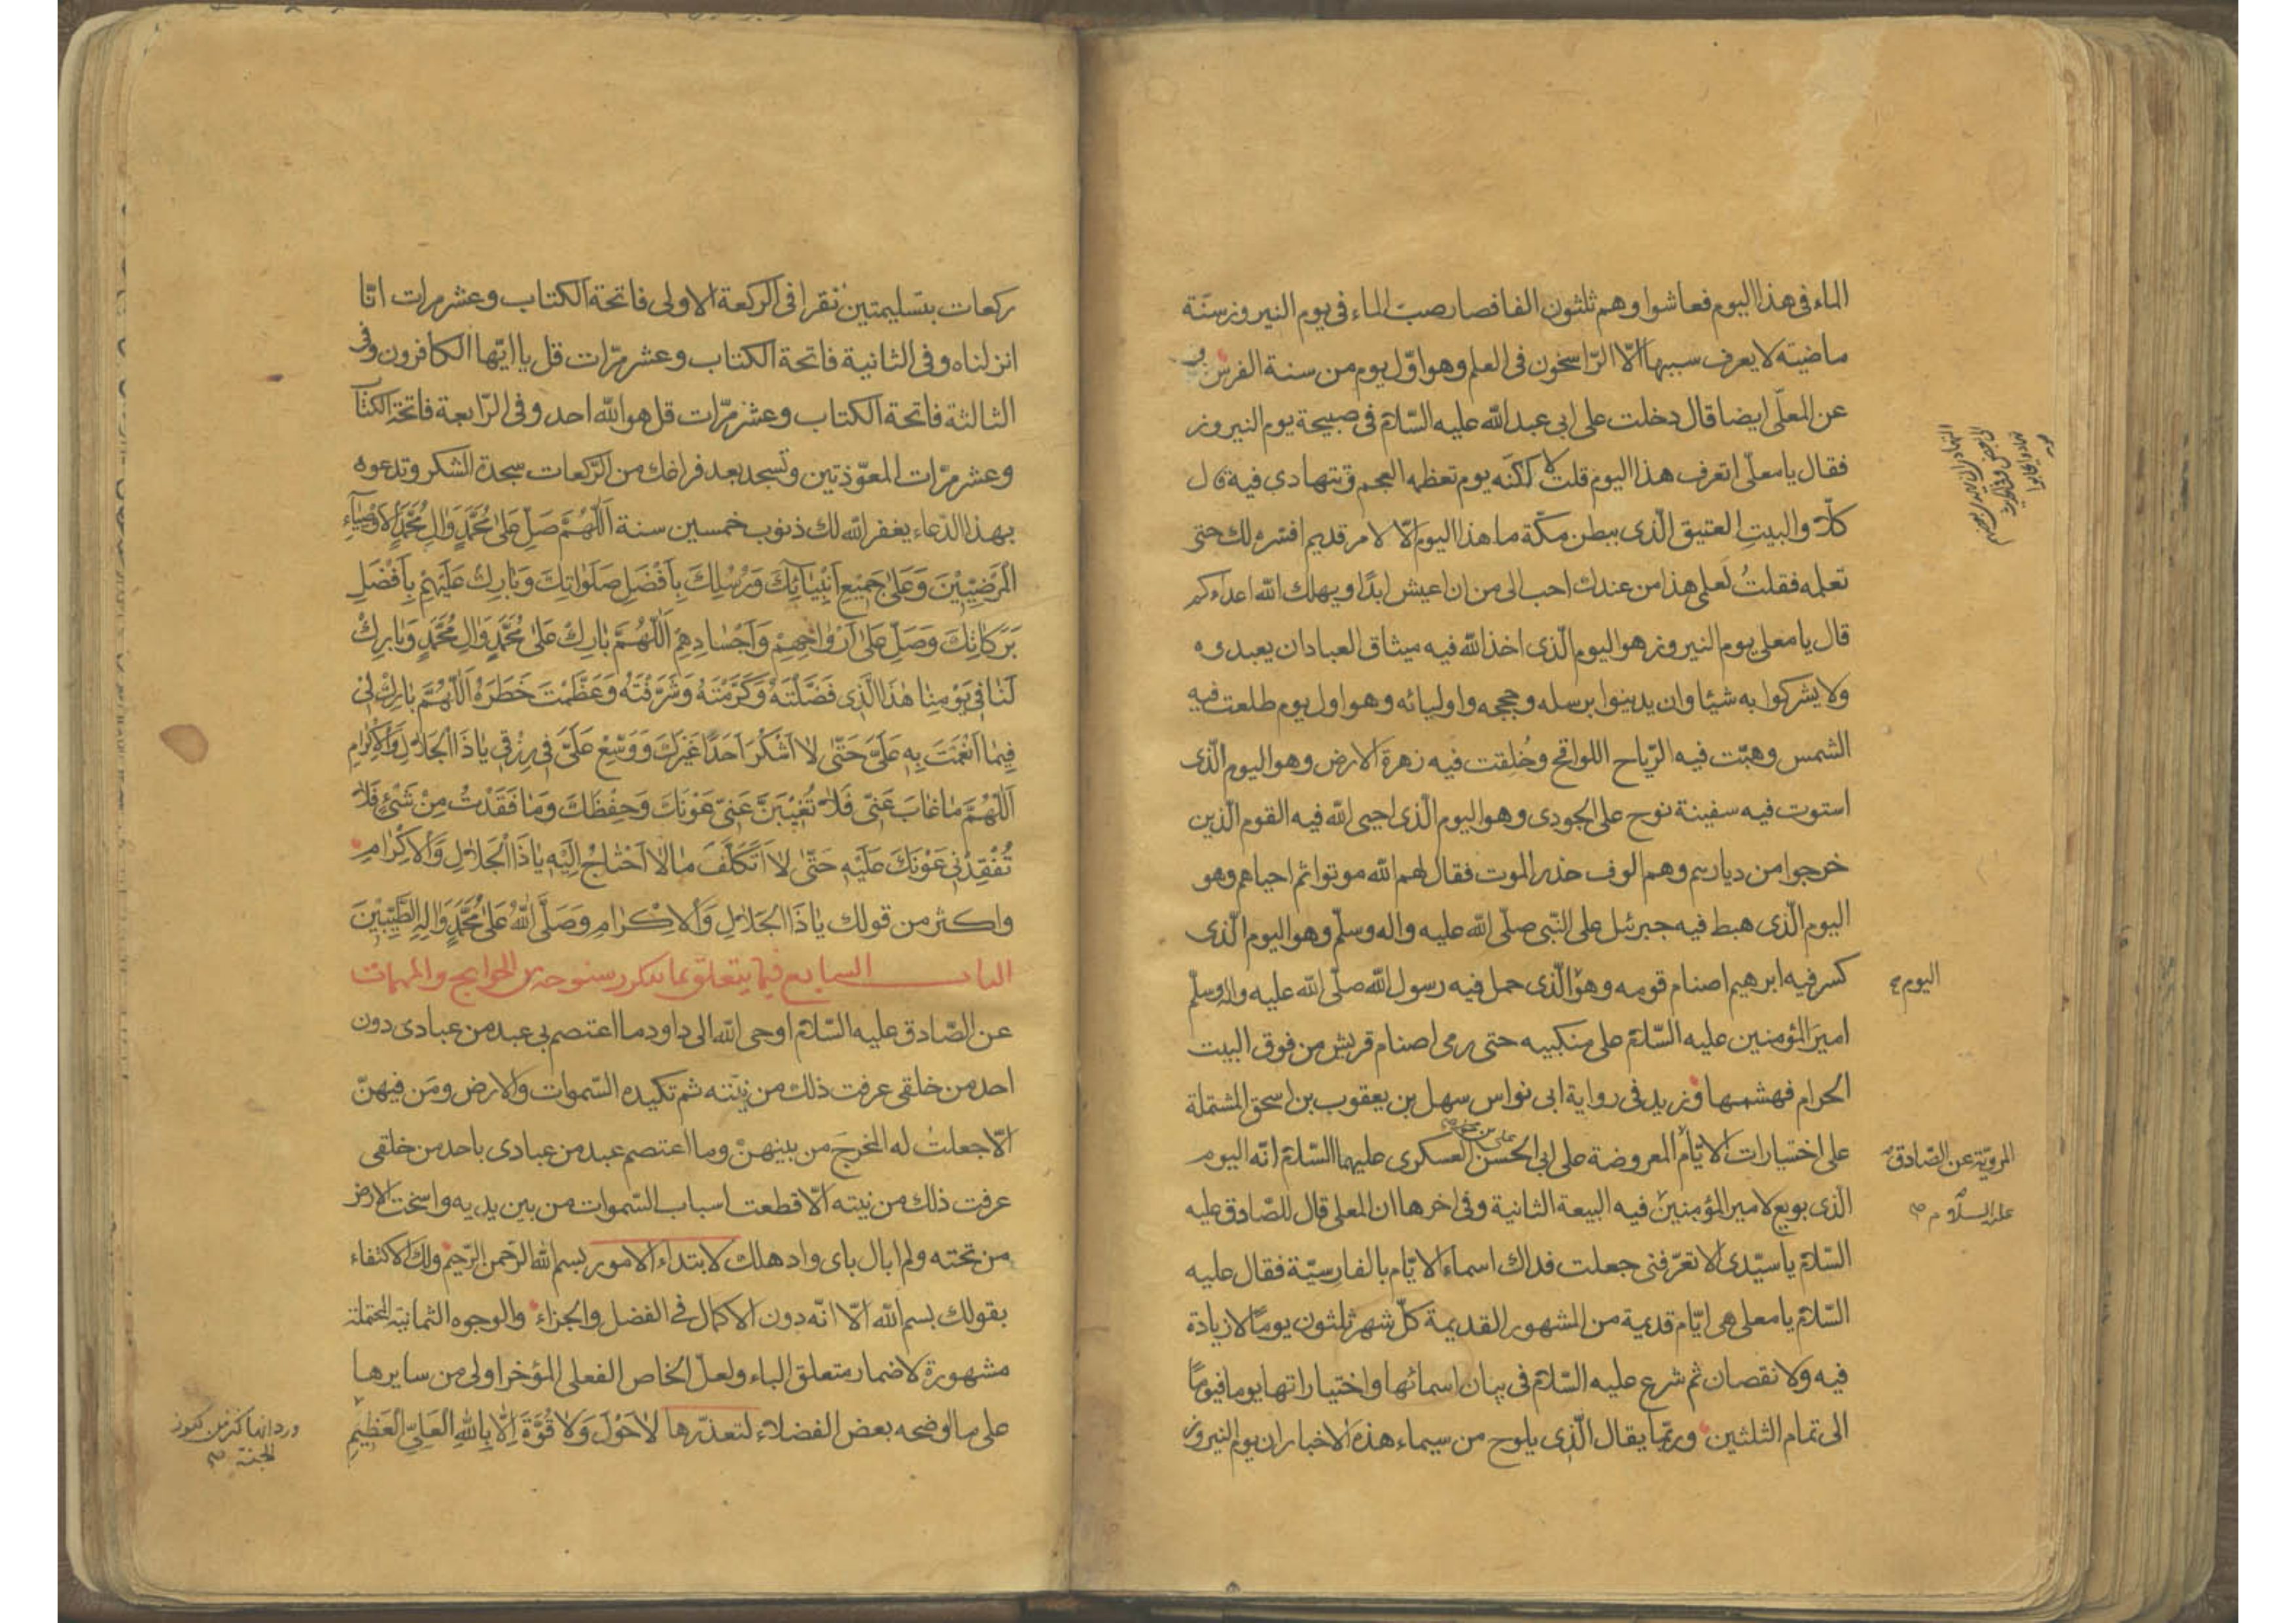 الماء فى هذا اليوم فعاشوا وهم ثلثون الفا فصار صبّ الماء فى يوم النيروز سنّة
ماضية لا يعرف سببها الّا الرّاسخون فى العلم وهو اوّل يوم من سنة الفرس و
عن المعلّى ايضا قال دخلت على ابى عبد الله عليه السّلام فى صبيحة يوم النيروز
فقال يا معلّى اتعرف هذا اليوم قلت لا لكنّه يوم تعظمه العجم وتتهادى فيه قال
كلّا والبيتِ العتيق الّذى ببطن مكّة ما هذا اليوم الّا لامر قديم افسّره لك حتى
تعلمه فقلتُ لعلمى هذا من عندك احب الى من ان اعيش ابدًا ويهلك الله اعداءكم
قال يا معلى يوم النيروز هو اليوم الّذى اخذ الله فيه ميثاق العباد ان يعبدوه
ولا يشركوا به شيئا وان يدينوا برسله وحججه واوليائه وهو اول يوم طلعت فيه
الشمس وهبّت فيه الرّياح اللواقح وخُلِقت فيه زهرة الارض وهو اليوم الّذى
استوت فيه سفينة نوح على الجودى وهو اليوم الّذى احيى الله فيه القوم الّذين
خرجوا من ديارهم وهم الوف حذر الموت فقال لهم الله موتوا ثم احياهم وهو
اليوم الّذى هبط فيه جبرئيل على النّبى صلّى الله عليه واله وسلّم وهو اليوم الّذى
كسر فيه ابرهيم اصنام قومه وهو الّذى حمل فيه رسول الله صلّى الله عليه واله وسلّم
اليوم
اميرَ المؤمنين عليه السّلام على منكبيه حتى رمى اصنام قريش من فوق البيت
الحرام فهشمها وزيد فى رواية ابى نواس سهل بن يعقوب بن اسحق المشتملة
على اختيارات الايّام المعروضة على ابى الحسن على بن محمد العسكرى عليهما السّلام انّه اليوم
المرويّة عن الصّادق
عليه السلام
الّذى بويع لامير المؤمنين فيه البيعة الثانية وفى اخرها ان المعلى قال للصّادق عليه
السّلام يا سيّدى الا تعرّفنى جعلت فداك اسماء الايّام بالفارسيّة فقال عليه
السّلام يا معلى هى ايّام قديمة من الشهور القديمة كلّ شهر ثلثون يومًا لا زيادة
فيه ولا نقصان ثم شرع عليه السّلام فى بيان اسمائها واختياراتها يوما فيومًا
الى تمام الثلثين وربّما يقال الّذى يلوح من سيماء هذه الاخبار ان يوم النيروز
ركعات بتسليمتين تقرا فى الركعة الاولى فاتحة الكتاب وعشر مرات انّا
انزلناه وفى الثانية فاتحة الكتاب وعشر مرّات قل يا ايّها الكافرون وفى
الثالثة فاتحة الكتاب وعشر مرّات قل هو الله احد وفى الرّابعة فاتحة الكتاب
وعشر مرّات المعوّذتين وتسجد بعد فراغك من الرّكعات سجدة الشكر وتدعوه
بهذا الدّعاء يغفر الله لك ذنوب خمسين سنة اَللّهُمَّ صَلِّ عَلىٰ مُحَمَّدٍ وَالِ مُحَمَّدٍ الاَوْصِيٰآءِ
الْمَرْضِيّينَ وَعَلىٰ جَميعِ اَنْبِيٰائِكَ وَرُسُلِكَ بِاَفْضَلِ صَلَوٰاتِكَ وَبٰارِكْ عَلَيْهِمْ بِاَفْضَلِ
بَرَكاتِكَ وَصَلِّ عَلىٰ اَرْوٰاحِهِمْ وَاَجْسٰادِهِمْ اَللّهُمَّ بٰارِكْ عَلىٰ مُحَمَّدٍ وَالِ مُحَمَّدٍ وَبٰارِكْ
لَنٰا فى يَوْمِنٰا هٰذَا الَّذى فَضَّلْتَهُ وَكَرَّمْتَهُ وَشَرَّفْتَهُ وَعَظَّمْتَ خَطَرَهُ اَللّهُمَّ بٰارِكْ لى
فيمٰا اَنْعَمْتَ بِهِ عَلَىَّ حَتّىٰ لا اَشْكُرَ اَحَدًا غَيْرَكَ وَوَسِّعْ عَلَىَّ فى رِزْقى يٰا ذَا الْجَلالِ وَالاِكْرٰامِ
اَللّهُمَّ مٰا غٰابَ عَنّى فَلا تُغَيِّبَنَّ عَنّى عَوْنَكَ وَحِفْظَكَ وَمٰا فَقَدْتُ مِنْ شَىْءٍ فَلا
تُفْقِدْنى عَوْنَكَ عَلَيْهِ حَتّىٰ لا اَتَكَلَّفَ مٰا لا اَحْتٰاجُ اِلَيْهِ يٰا ذَا الْجَلالِ وَالاِكْرٰامِ
واكثر من قولك يٰا ذَا الْجَلالِ وَالاِكْرٰامِ وَصَلَّى اللهُ عَلىٰ مُحَمَّدٍ وَالِهِ الطَّيِّبينَ
الباب السابع فيما يتعلّق بما يتكرر سنوحه من الحوايج والمهمات
عن الصّادق عليه السّلام اوحى الله الى داود ما اعتصم بى عبد من عبادى دون
احد من خلقى عرفت ذلك من نيّته ثم تكيده السّموات والارض ومَن فيهنّ
الّا جعلتُ له المخرجَ من بينهنّ وما اعتصم عبد من عبادى باحد من خلقى
عرفت ذلك من نيته الّا قطعت اسباب السّموات من بين يديه واسخت الارض
من تحته ولم ابال باى واد هلك لابتداء الامور بسم الله الرّحمن الرّحيم ولك الاكتفاء
بقولك بسم الله الّا انّه دون الاكمال فى الفضل والجزاء والوجوه الثمانية المحتملة
مشهورة لاضمار متعلق الباء ولعلّ الخاص الفعلى المؤخر اولى من سايرها
على ما اوضحه بعض الفضلاء لتعذّرها لاٰ حَوْلَ وَلاٰ قُوَّةَ اِلّٰا بِاللهِ الْعَلِىِّ الْعَظيمِ
ورد انها كنز من كنوز
الجنة